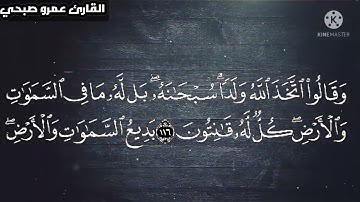 القارئ عمرو صبحي
KINEMASTER
وَقَالُوا۟ ٱتَّخَذَ ٱللَّهُ وَلَدًۭا ۗ سُبْحَـٰنَهُۥ ۖ بَل لَّهُۥ مَا فِى ٱلسَّمَـٰوَٰتِ
وَٱلْأَرْضِ ۖ كُلٌّۭ لَّهُۥ قَـٰنِتُونَ ١١٦ بَدِيعُ ٱلسَّمَـٰوَٰتِ وَٱلْأَرْضِ ۖ